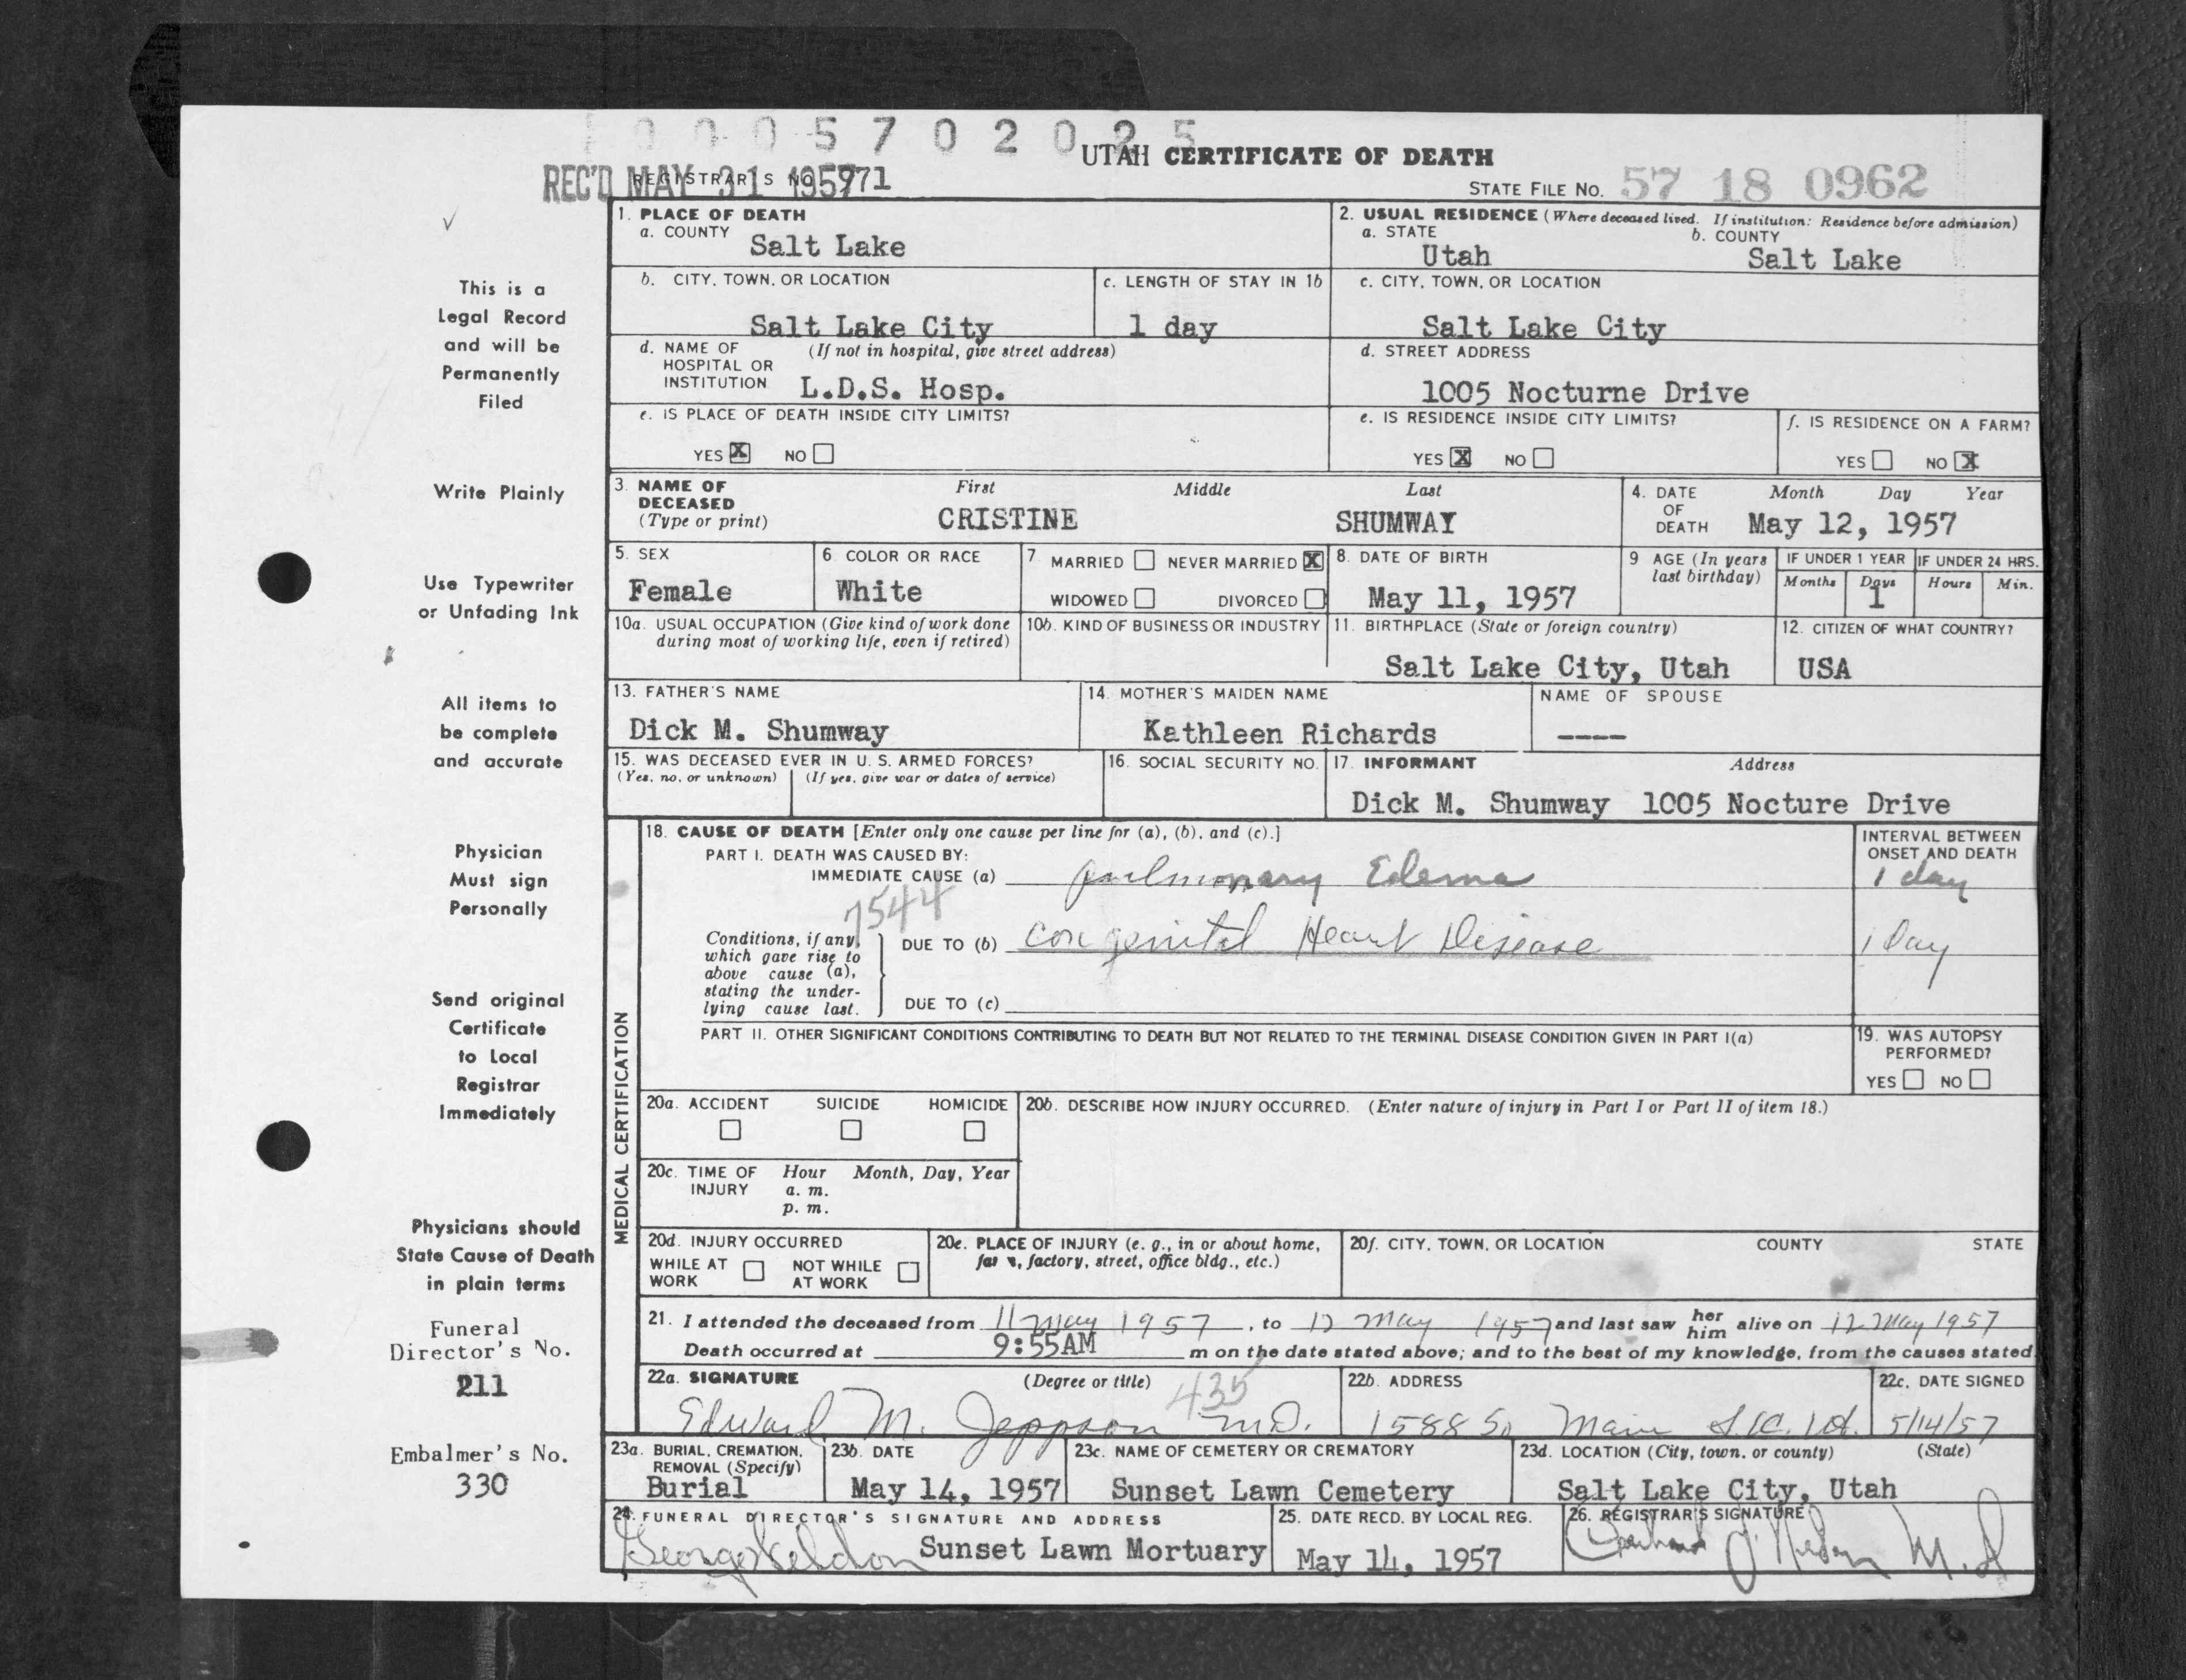 0005702025
UTAH CERTIFICATE OF DEATH
REC'D MAY 31 1957
REGISTRAR'S NO. 971
STATE FILE NO. 57 18 0962
This is a
Legal Record
and will be
Permanently
Filed
Write Plainly
Use Typewriter
or Unfading Ink
All items to
be complete
and accurate
Physician
Must sign
Personally
Send original
Certificate
to Local
Registrar
Immediately
Physicians should
State Cause of Death
in plain terms
Funeral
Director's No.
211
Embalmer's No.
330
1. PLACE OF DEATH
a. COUNTY
Salt Lake
2. USUAL RESIDENCE (Where deceased lived. If institution: Residence before admission)
a. STATE b. COUNTY
Utah Salt Lake
b. CITY, TOWN, OR LOCATION
Salt Lake City
c. LENGTH OF STAY IN 1b
1 day
c. CITY, TOWN, OR LOCATION
Salt Lake City
d. NAME OF (If not in hospital, give street address)
HOSPITAL OR
INSTITUTION L.D.S. Hosp.
d. STREET ADDRESS
1005 Nocturne Drive
e. IS PLACE OF DEATH INSIDE CITY LIMITS?
YES X NO
e. IS RESIDENCE INSIDE CITY LIMITS?
YES X NO
f. IS RESIDENCE ON A FARM?
YES NO X
3. NAME OF First Middle Last
DECEASED
(Type or print) CRISTINE SHUMWAY
4. DATE Month Day Year
OF
DEATH May 12, 1957
5. SEX
Female
6. COLOR OR RACE
White
7. MARRIED NEVER MARRIED X
WIDOWED DIVORCED
8. DATE OF BIRTH
May 11, 1957
9 AGE (In years
last birthday)
IF UNDER 1 YEAR IF UNDER 24 HRS.
Months Days Hours Min.
1
10a. USUAL OCCUPATION (Give kind of work done
during most of working life, even if retired)
10b. KIND OF BUSINESS OR INDUSTRY
11. BIRTHPLACE (State or foreign country)
Salt Lake City, Utah
12. CITIZEN OF WHAT COUNTRY?
USA
13. FATHER'S NAME
Dick M. Shumway
14. MOTHER'S MAIDEN NAME
Kathleen Richards
NAME OF SPOUSE
----
15. WAS DECEASED EVER IN U. S. ARMED FORCES?
(Yes, no, or unknown) (If yes, give war or dates of service)
16. SOCIAL SECURITY NO.
17. INFORMANT Address
Dick M. Shumway 1005 Nocture Drive
MEDICAL CERTIFICATION
18. CAUSE OF DEATH [Enter only one cause per line for (a), (b), and (c).]
PART I. DEATH WAS CAUSED BY:
IMMEDIATE CAUSE (a) pulmonary Edema
INTERVAL BETWEEN
ONSET AND DEATH
1 day
7544
Conditions, if any,
which gave rise to
above cause (a),
stating the under-
lying cause last.
DUE TO (b) congenital Heart Disease
1 Day
DUE TO (c)
PART II. OTHER SIGNIFICANT CONDITIONS CONTRIBUTING TO DEATH BUT NOT RELATED TO THE TERMINAL DISEASE CONDITION GIVEN IN PART I(a)
19. WAS AUTOPSY
PERFORMED?
YES NO
20a. ACCIDENT SUICIDE HOMICIDE
20b. DESCRIBE HOW INJURY OCCURRED. (Enter nature of injury in Part I or Part II of item 18.)
20c. TIME OF Hour Month, Day, Year
INJURY a. m.
p. m.
20d. INJURY OCCURRED
WHILE AT NOT WHILE
WORK AT WORK
20e. PLACE OF INJURY (e. g., in or about home,
factory, street, office bldg., etc.)
20f. CITY, TOWN, OR LOCATION COUNTY STATE
21. I attended the deceased from 11 May 1957, to 12 May 1957 and last saw her him alive on 12 May 1957
Death occurred at 9:55AM m on the date stated above; and to the best of my knowledge, from the causes stated
22a. SIGNATURE (Degree or title)
435
Edward M. Jeppson M.D.
22b. ADDRESS
1588 So Main
22c. DATE SIGNED
5/14/57
23a. BURIAL, CREMATION,
REMOVAL (Specify)
Burial
23b. DATE
May 14, 1957
23c. NAME OF CEMETERY OR CREMATORY
Sunset Lawn Cemetery
23d. LOCATION (City, town, or county) (State)
Salt Lake City, Utah
24. FUNERAL DIRECTOR'S SIGNATURE AND ADDRESS
Sunset Lawn Mortuary
25. DATE RECD. BY LOCAL REG.
May 14, 1957
26. REGISTRAR'S SIGNATURE